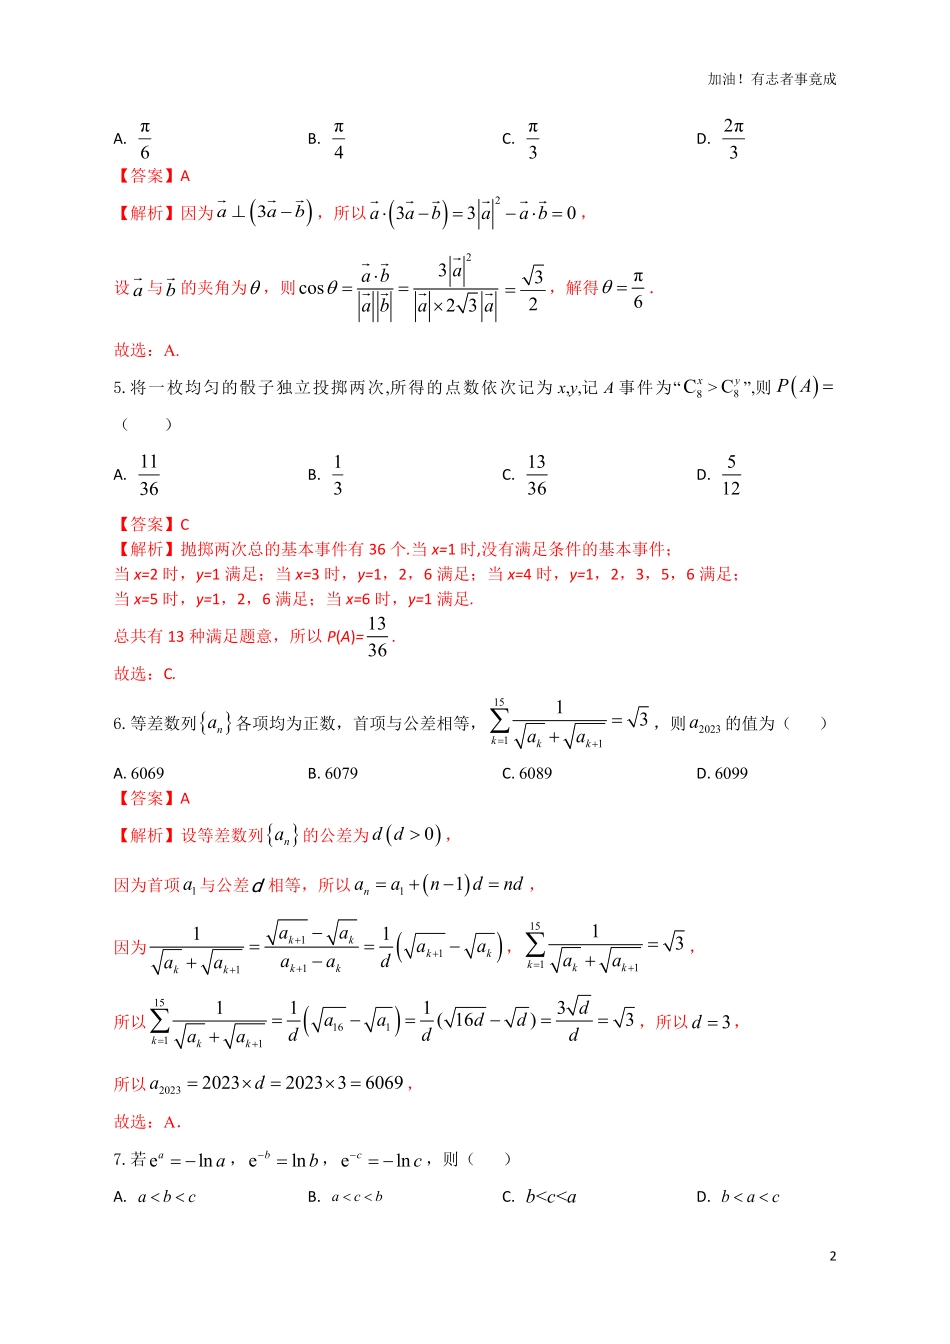 加油！有志者事竟成
A. π/6 B. π/4 C. π/3 D. 2π/3
【答案】A
【解析】因为 a⃗⊥(3a⃗−b⃗)，所以 a⃗·(3a⃗−b⃗)=3|a⃗|²−a⃗·b⃗=0，
设 a⃗ 与 b⃗ 的夹角为θ，则 cosθ=(a⃗·b⃗)/(|a⃗||b⃗|)=3|a⃗|²/(|a⃗|×2 3|a⃗|)=3/2，解得θ=π/6．
故选：A.
5. 将一枚均匀的骰子独立投掷两次,所得的点数依次记为 x,y,记 A 事件为“C₈ˣ＞C₈ʸ”,则 P(A)=
（ ）
A. 11/36 B. 1/3 C. 13/36 D. 5/12
【答案】C
【解析】抛掷两次总的基本事件有 36 个.当 x=1 时,没有满足条件的基本事件；
当 x=2 时，y=1 满足；当 x=3 时，y=1，2，6 满足；当 x=4 时，y=1，2，3，5，6 满足；
当 x=5 时，y=1，2，6 满足；当 x=6 时，y=1 满足.
总共有 13 种满足题意，所以 P(A)=13/36．
故选：C.
6. 等差数列{aₙ}各项均为正数，首项与公差相等，∑(k=1→15) 1/(aₖ+aₖ₊₁)=√3，则 a₂₀₂₃ 的值为（ ）
A. 6069 B. 6079 C. 6089 D. 6099
【答案】A
【解析】设等差数列{aₙ}的公差为 d(d>0)，
因为首项 a₁ 与公差 d 相等，所以 aₙ=a₁+(n−1)d=nd，
因为 1/(aₖ+aₖ₊₁)=(aₖ₊₁−aₖ)/(aₖ₊₁−aₖ)=1/d(aₖ₊₁−aₖ)，∑(k=1→15) 1/(aₖ+aₖ₊₁)=3，
所以 ∑(k=1→15) 1/(aₖ+aₖ₊₁)=1/d(a₁₆−a₁)=1/d(16d−d)=3√d/d=3，所以 d=3，
所以 a₂₀₂₃=2023×d=2023×3=6069，
故选：A．
7. 若 eᵃ=−ln a，e⁻ᵇ=ln b，e⁻ᶜ=−ln c，则（ ）
A. a<b<c B. a<c<b C. b<c<a D. b<a<c
2